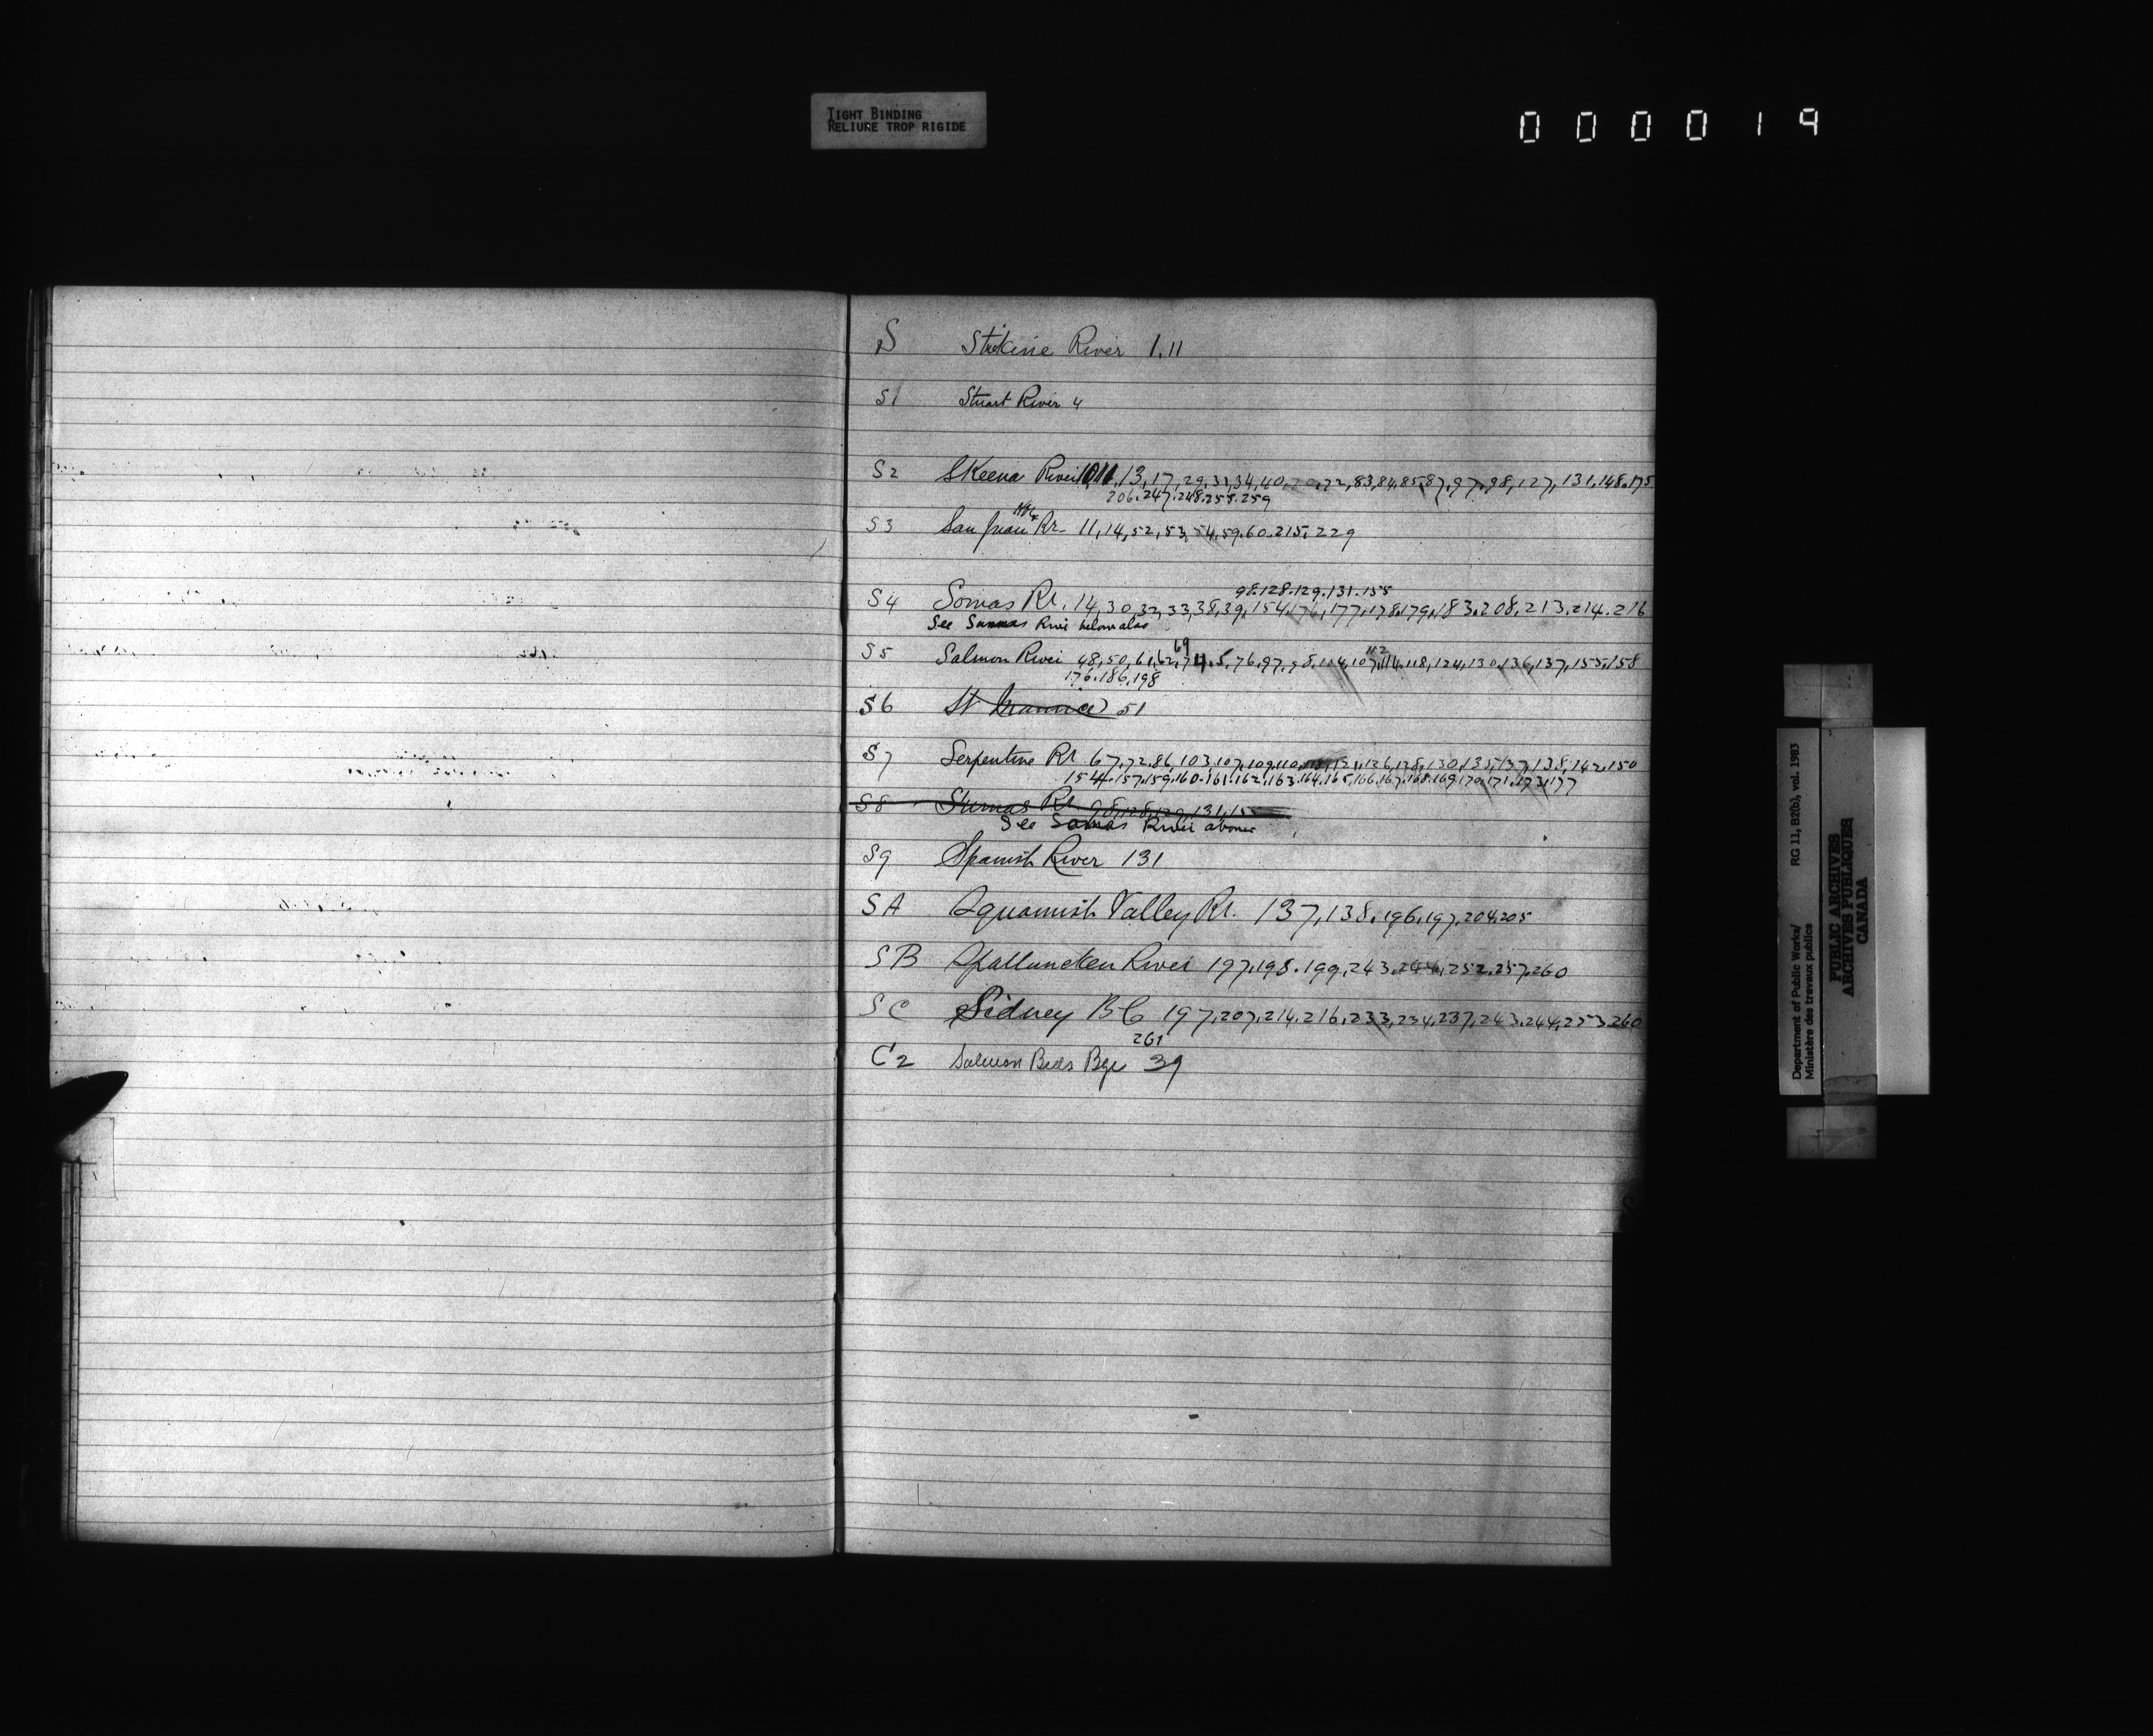 TIGHT BINDING
RELIURE TROP RIGIDE
000019
S Stikine River 1.11
S1 Stuart River 4
S2 Skeena River 10,11,13,17,29,31,34,40,70,72,83,84,85,87,97,98,127,131,148.175
206.247.248.255.259
S3 San Juan Rr- 11,14,52,53,54,59.60.215,229
98.128.129.131.155
S4 Somas Rr. 14,30,32,33,38,39,154,176,177,178.179,183.208,213,214.216
See Sumas River below also
69 112
S5 Salmon River 48,50,61,62,74,5,76,97,98,104,107,114.118,124,130,136,137,155,158
176.186.198
S6 St 51
S7 Serpentine Rr 67,72,86,103,107,109,110, 121,126,128,130,135,137,138,142.150
154.157.159.160.161.162.163.164.165.166.167.168.169.170.171.173.177
S8 Sumas Rr. 98,128,129,131,15
See Somas River above
S9 Spanish River 131
SA Squamish Valley Rr. 137,138.196.197.204.205
SB Spallumcheen River 197.198.199.243.244,252.257.260
SC Sidney BC 197,207,214.216,233,234,237,243.244,253.260
261
C2 Salmon Beds Bge 39
Department of Public Works/
Ministère des travaux publics
RG 11, B2(b), vol. 1983
PUBLIC ARCHIVES
ARCHIVES PUBLIQUES
CANADA